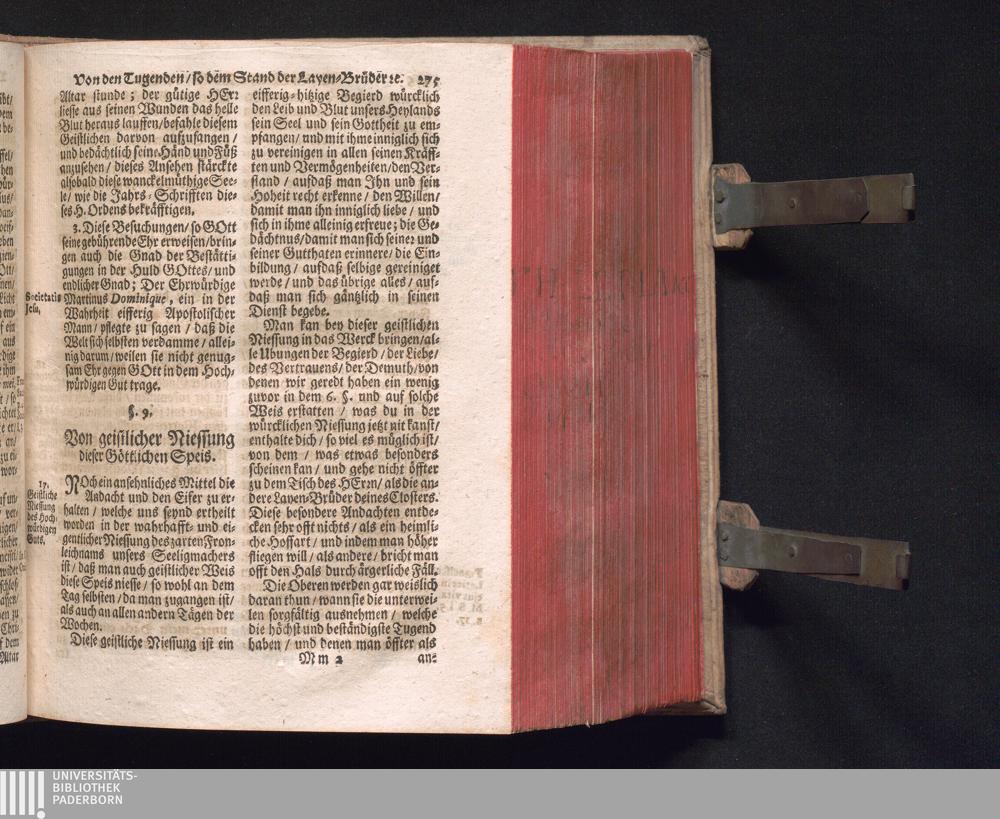 Von den Tugenden / so dem Stand der Layen-Brüder ꝛc. 275
Altar stunde; der gütige HErꝛ
liesse aus seinen Wunden das helle
Blut heraus lauffen / befahle diesem
Geistlichen darvon aufzufangen /
und bedächtlich seine Händ und Füß
anzusehen / dieses Ansehen stärckte
alsobald diese wanckelmüthige See-
le / wie die Jahrs-Schrifften die-
ses H. Ordens bekräfftigen.
3. Diese Besuchungen / so GOtt
seine gebührende Ehr erweisen / brin-
gen auch die Gnad der Bestätti-
gungen in der Huld GOttes / und
endlicher Gnad; Der Ehrwürdige
Societatis
Jesu.
Martinus Dominique, ein in der
Wahrheit eifferig Apostolischer
Mann / pflegte zu sagen / daß die
Welt sich selbsten verdamme / allei-
nig darum / weilen sie nicht genug-
sam Ehr gegen GOtt in dem Hoch-
würdigen Gut trage.
§. 9.
Von geistlicher Niessung
dieser Göttlichen Speis.
17.
Geistliche
Niessung
des Hoch-
würdigen
Guts.
NOch ein ansehnliches Mittel die
Andacht und den Eifer zu er-
halten / welche uns seynd ertheilt
worden in der wahrhafft- und ei-
gentlicher Niessung des zarten Fron-
leichnams unsers Seeligmachers
ist / daß man auch geistlicher Weis
diese Speis niesse / so wohl an dem
Tag selbsten / da man zugangen ist /
als auch an allen andern Tägen der
Wochen.
Diese geistliche Niessung ist ein
eifferig-hitzige Begierd würcklich
den Leib und Blut unsers Heylands
sein Seel und sein Gottheit zu em-
pfangen / und mit ihme inniglich sich
zu vereinigen in allen seinen Kräff-
ten und Vermögenheiten / den Ver-
stand / aufdaß man Ihn und sein
Hoheit recht erkenne / den Willen /
damit man ihn inniglich liebe / und
sich in ihme alleinig erfreue; die Ge-
dächtnus / damit man sich seiner und
seiner Gutthaten erinnere / die Ein-
bildung / aufdaß selbige gereiniget
werde / und das übrige alles / auf-
daß man sich gäntzlich in seinen
Dienst begebe.
Man kan bey dieser geistlichen
Niessung in das Werck bringen / al-
le Ubungen der Begierd / der Liebe /
des Vertrauens / der Demuth / von
denen wir geredt haben ein wenig
zuvor in dem 6. §. und auf solche
Weis erstatten / was du in der
würcklichen Niessung jetzt nit kanst /
enthalte dich / so viel es müglich ist /
von dem / was etwas besonders
scheinen kan / und gehe nicht öffter
zu dem Tisch des HErꝛn / als die an-
dere Layen-Brüder deines Closters.
Diese besondere Andachten entde-
cken sehr offt nichts / als ein heimli-
che Hoffart / und indem man höher
fliegen will / als andere / bricht man
offt den Hals durch ärgerliche Fäll.
Die Oberen werden gar weislich
daran thun / wann sie die unterwei-
len sorgfältig ausnehmen / welche
die höchst und beständigste Tugend
haben / und denen man öffter als
Mm 2 an-
UNIVERSITÄTS-
BIBLIOTHEK
PADERBORN